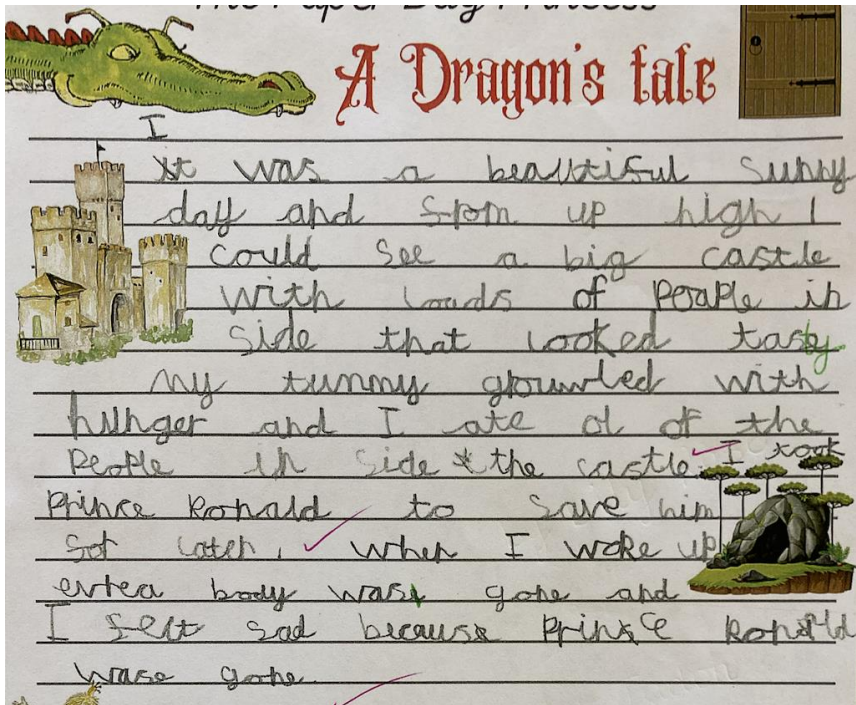 The Paper Bag Princess
A Dragon's tale
I
it was a beautiful sunny
day and from up high I
could see a big castle
with loads of peaple in
side that looked tasty
my tummy grouwled with
hunger and I ate ol of the
people in side the castle. I took
Prince Ronald to save him
for later. when I woke up
evrea body was gone and
I felt sad because Prince Ronald
wase gone.